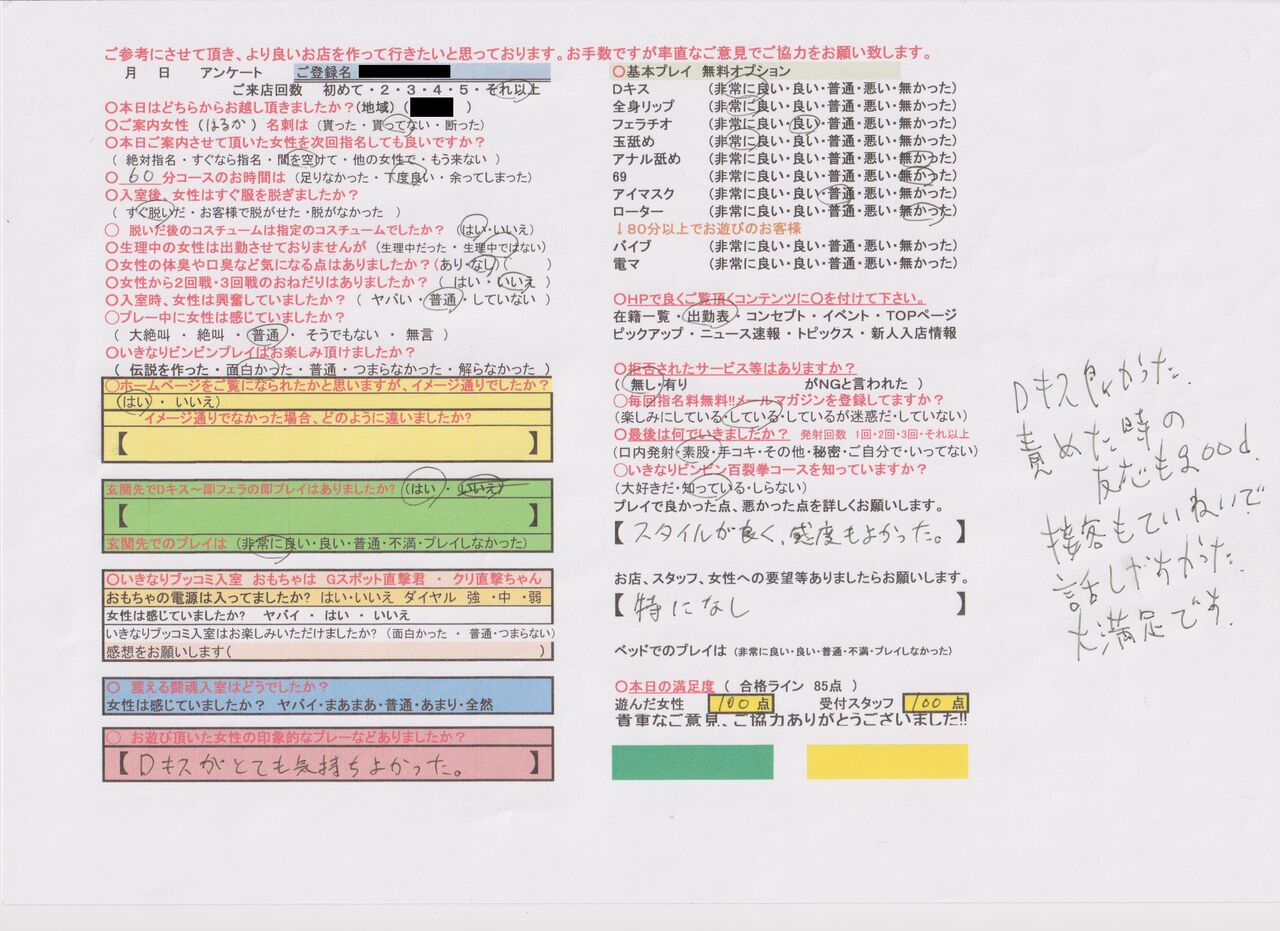 ご参考にさせて頂き、より良いお店を作って行きたいと思っております。お手数ですが率直なご意見でご協力をお願い致します。
月 日 アンケート ご登録名
ご来店回数 初めて・2・3・4・5・それ以上
〇本日はどちらからお越し頂きましたか?(地域) ( )
〇ご案内女性 (はるか) 名刺は (貰った・貰ってない・断った)
〇本日ご案内させて頂いた女性を次回指名しても良いですか?
( 絶対指名・すぐなら指名・間を空けて・他の女性で・もう来ない )
〇 60 分コースのお時間は (足りなかった・丁度良い・余ってしまった)
〇入室後、女性はすぐ服を脱ぎましたか?
( すぐ脱いだ・お客様で脱がせた・脱がなかった )
〇 脱いだ後のコスチュームは指定のコスチュームでしたか? (はい・いいえ)
〇生理中の女性は出勤させておりませんが (生理中だった・生理中ではない)
〇女性の体臭や口臭など気になる点はありましたか?(あり・なし)( )
〇女性から2回戦・3回戦のおねだりはありましたか? ( はい・いいえ )
〇入室時、女性は興奮していましたか? ( ヤバい・普通・していない )
〇プレー中に女性は感じていましたか?
( 大絶叫・絶叫・普通・そうでもない・無言 )
〇いきなりビンビンプレイはお楽しみ頂けましたか?
( 伝説を作った・面白かった・普通・つまらなかった・解らなかった )
〇ホームページをご覧になられたかと思いますが、イメージ通りでしたか?
(はい・いいえ)
イメージ通りでなかった場合、どのように違いましたか?
【 】
玄関先でDキス~即フェラの即プレイはありましたか? (はい・いいえ)
【 】
玄関先でのプレイは (非常に良い・良い・普通・不満・プレイしなかった)
〇いきなりブッコミ入室 おもちゃは Gスポット直撃君・クリ直撃ちゃん
おもちゃの電源は入ってましたか? はい・いいえ ダイヤル 強・中・弱
女性は感じていましたか? ヤバイ・はい・いいえ
いきなりブッコミ入室はお楽しみいただけましたか? (面白かった・普通・つまらない)
感想をお願いします( )
〇 震える闘魂入室はどうでしたか?
女性は感じていましたか? ヤバイ・まあまあ・普通・あまり・全然
〇 お遊び頂いた女性の印象的なプレーなどありましたか?
【Dキスがとても気持ちよかった。】
〇基本プレイ 無料オプション
Dキス (非常に良い・良い・普通・悪い・無かった)
全身リップ (非常に良い・良い・普通・悪い・無かった)
フェラチオ (非常に良い・良い・普通・悪い・無かった)
玉舐め (非常に良い・良い・普通・悪い・無かった)
アナル舐め (非常に良い・良い・普通・悪い・無かった)
69 (非常に良い・良い・普通・悪い・無かった)
アイマスク (非常に良い・良い・普通・悪い・無かった)
ローター (非常に良い・良い・普通・悪い・無かった)
↓80分以上でお遊びのお客様
バイブ (非常に良い・良い・普通・悪い・無かった)
電マ (非常に良い・良い・普通・悪い・無かった)
〇HPで良くご覧頂くコンテンツに〇を付けて下さい。
在籍一覧・出勤表・コンセプト・イベント・TOPページ
ピックアップ・ニュース速報・トピックス・新人入店情報
〇拒否されたサービス等はありますか?
(無し・有り がNGと言われた )
〇毎回指名料無料!!メールマガジンを登録してますか?
(楽しみにしている・している・しているが迷惑だ・していない)
〇最後は何でいきましたか? 発射回数 1回・2回・3回・それ以上
(口内発射・素股・手コキ・その他・秘密・ご自分で・いってない)
〇いきなりビンビン百裂拳コースを知っていますか?
(大好きだ・知っている・しらない)
プレイで良かった点、悪かった点を詳しくお願いします。
【スタイルが良く、感度もよかった。】
お店、スタッフ、女性への要望等ありましたらお願いします。
【特になし】
ベッドでのプレイは (非常に良い・良い・普通・不満・プレイしなかった)
〇本日の満足度 ( 合格ライン 85点 )
遊んだ女性 100 点 受付スタッフ 100 点
貴重なご意見、ご協力ありがとうございました!!
Dキス良かった。
責めた時の
反応もgood.
接客もていねいで
話しがすかった.
大満足です.